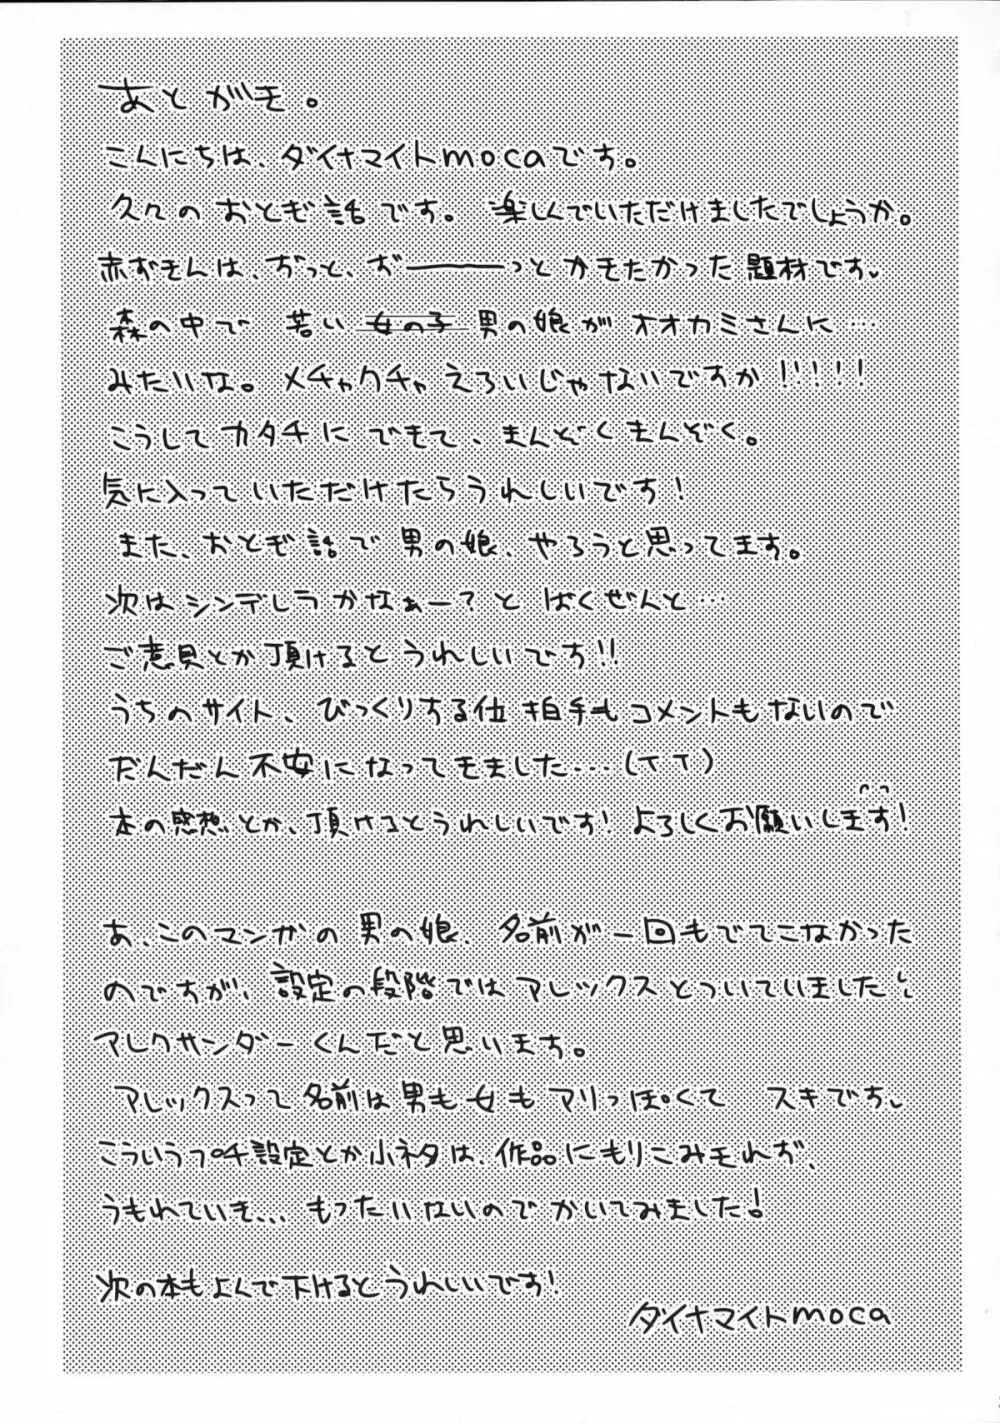 あとがき。
こんにちは、ダイナマイトmocaです。
久々のおとぎ話です。楽しんでいただけましたでしょうか。
赤ずきんは、ずっと、ずーーーーっとかきたかった題材です。
森の中で 若い 女の子 男の娘がオオカミさんに…
みたいな。メチャクチャえろいじゃないですか!!!!!
こうしてカタチにできて、まんぞくまんぞく。
気に入っていただけたらうれしいです!
また、おとぎ話で男の娘、やろうと思ってます。
次はシンデレラかなぁー?とばくぜんと…
ご意見とか頂けるとうれしいです!!
うちのサイト、びっくりする位拍手もコメントもないので
だんだん不安になってきました…(TT)
本の感想とか、頂けるとうれしいです!よろしくお願いします!
あ、このマンガの男の娘、名前が一回もでてこなかった
のですが、設定の段階ではアレックスとついていました。
アレクサンダーくんだと思います。
アレックスって名前は男も女もアリっぽくて スキです。
こういうプチ設定とか小ネタは、作品にもりこみきれず、
うもれていき…もったいないのでかいてみました!
次の本もよんで下けるとうれしいです!
ダイナマイトmoca